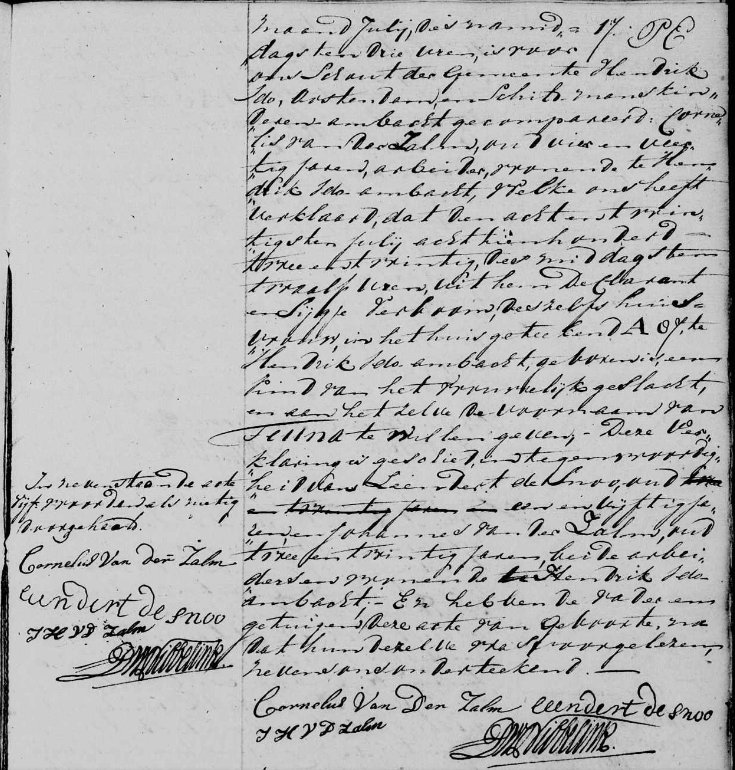 maand Julij, des namid„ = 17. PE
dags ten drie uren, is voor
ons Schout der Gemeente Hendrik
Ido, Oostendam, en Schild manskin„
deren ambacht gecompareerd: Corne„
lis van der Zalm, oud vier en veer„
tig jaren, arbeider, wonende te Hen„
drik Ido ambacht, welke ons heeft
verklaard, dat den acht en twin„
tigsten Julij achttienhonderd
twee en twintig, des middags ten
twaalf uren, uit hem Declarant
en Sijgje Verhoorn deszelfs huis„
vrouw, in het huis geteekend A 87, te
Hendrik Ido ambacht, geboren is, een
kind van het vrouwelijk geslacht,
en aan het zelve de voornaam van
Teuna te willen geven,- Deze Ver„
klaring is geschied, in tegenwoordig„
heid van Leendert de Snoo, oud twee
en twintig jaren en een en vijftig ja„
ren, en Johannes van der Zalm, oud
twee en twintig jaren, beide arbei„
ders en wonende te Hendrik Ido
ambacht.- En hebben de vader en
getuigen deze acte van Geboorte, na
dat hun dezelve was voorgelezen,
nevens ons onderteekend. —
Cornelus Van Der Zalm leendert de snoo
J H V D Zalm
In nevenstaande acte
vijf woorden als nietig
doorgehaald.
Cornelus Van Der Zalm
leendert de snoo
J H V D Zalm